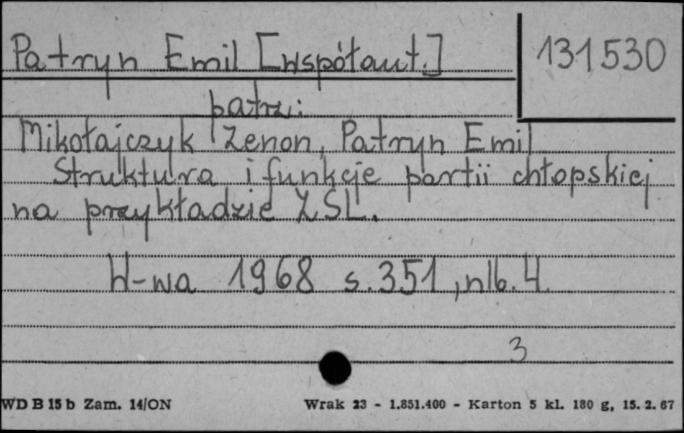 Patryn Emil [współaut.]
131530
patrz:
Mikołajczyk Zenon, Patryn Emil
Struktura i funkcje partii chłopskiej
na przykładzie ZSL.
W-wa 1968 s. 351, nlb. 4
3
WD B 15 b Zam. 14/ON
Wrak 23 - 1.851.400 - Karton 5 kl. 180 g, 15. 2. 67